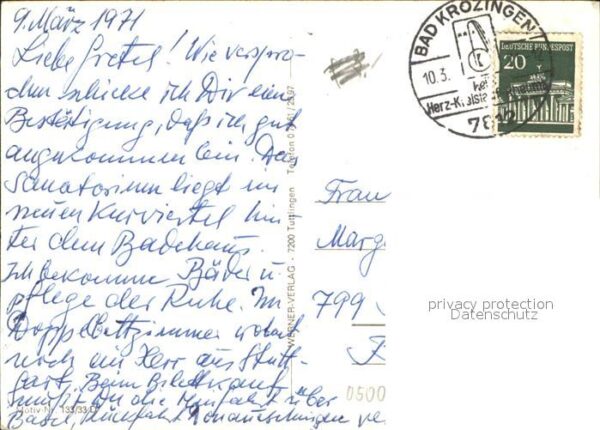 9. März 1971
Liebe Gretel! Wie verspro-
chen schicke ich Dir eine
Bestätigung, daß ich gut
angekommen bin. Das
Sanatorium liegt im
neuen Kurviertel hin-
ter dem Badehaus.
Ich bekomme Bäder u.
pflege der Ruhe. Im
Doppelbettzimmer wohnt
noch ein Herr aus Stutt-
gart. Beim Bilettkauf
mußt Du die Hinfahrt über
Basel, Rückfahrt Donaueschingen ve
Motiv-Nr. 133/33
WERNER-VERLAG - 7200 Tuttlingen Telefon
BAD KROZINGEN
10.3.
heilt
Herz-Kreislauf
7812
DEUTSCHE BUNDESPOST
20
Frau
Marg
799
privacy protection
Datenschutz
0500